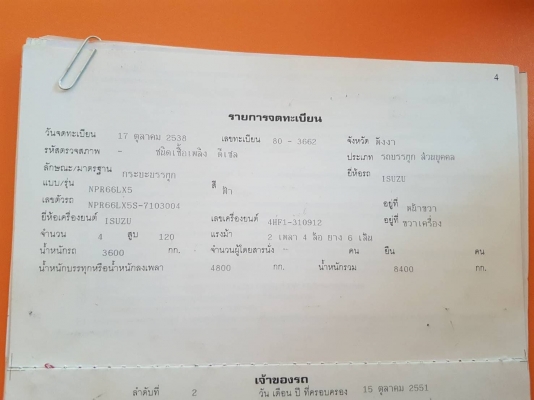 4
รายการจดทะเบียน
วันจดทะเบียน 17 ตุลาคม 2538 เลขทะเบียน 80 - 3662 จังหวัด พังงา
รหัสตรวจสภาพ - ชนิดเชื้อเพลิง ดีเซล ประเภท รถบรรทุก ส่วนบุคคล
ลักษณะ/มาตรฐาน กระบะบรรทุก ยี่ห้อรถ ISUZU
แบบ/รุ่น NPR66LX5 สี ฟ้า
เลขตัวรถ NPR66LX5S-7103004 อยู่ที่ หน้าขวา
ยี่ห้อเครื่องยนต์ ISUZU เลขเครื่องยนต์ 4HF1-310912 อยู่ที่ ขวาเครื่อง
จำนวน 4 สูบ 120 แรงม้า 2 เพลา 4 ล้อ ยาง 6 เส้น
น้ำหนักรถ 3600 กก. จำนวนผู้โดยสารนั่ง - คน ยืน คน
น้ำหนักบรรทุกหรือน้ำหนักลงเพลา 4800 กก. น้ำหนักรวม 8400 กก.
เจ้าของรถ
ลำดับที่ 2 วัน เดือน ปี ที่ครอบครอง 15 ตุลาคม 2551